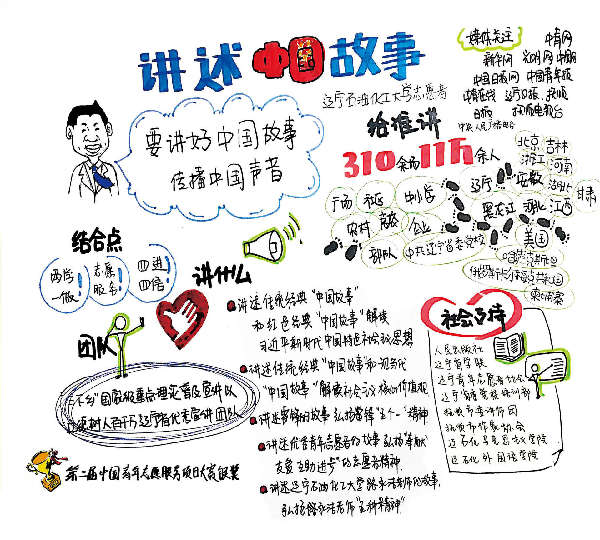 讲述中国故事
辽宁石油化工大学志愿者
要讲好中国故事
传播中国声音
媒体关注
中青网
新华网 光明网
中国日报网 中国青年报
中青在线 辽宁日报、抚顺
日报 抚顺电视台
给谁讲
310余场11万余人
广场 社区 中小学
农村 高校 企业
部队 中共辽宁省委党校
辽宁 安徽 湖北
北京 吉林
浙江 河南
甘肃
黑龙江 河北 江西
美国
柬埔寨
结合点
两学一做
志愿服务
四进四信
讲什么
讲述传统经典“中国故事”
和红色经典“中国故事”解读
习近平新时代中国特色社会主义思想
讲述传统经典“中国故事”和现当代
“中国故事”解读社会主义核心价值观
讲述雷锋的故事 弘扬雷锋“五个一”精神
讲述优秀青年志愿者的故事 弘扬“奉献
友爱 互助 进步”的志愿者精神
讲述辽宁石油化工大学
弘扬
团队
第一届中国青年志愿服务项目大赛银奖
社会支持
人民出版社
辽宁省学联
辽宁青年志愿者协会
抚顺市作家协会
辽石化马克思主义学院
辽石化外国语学院